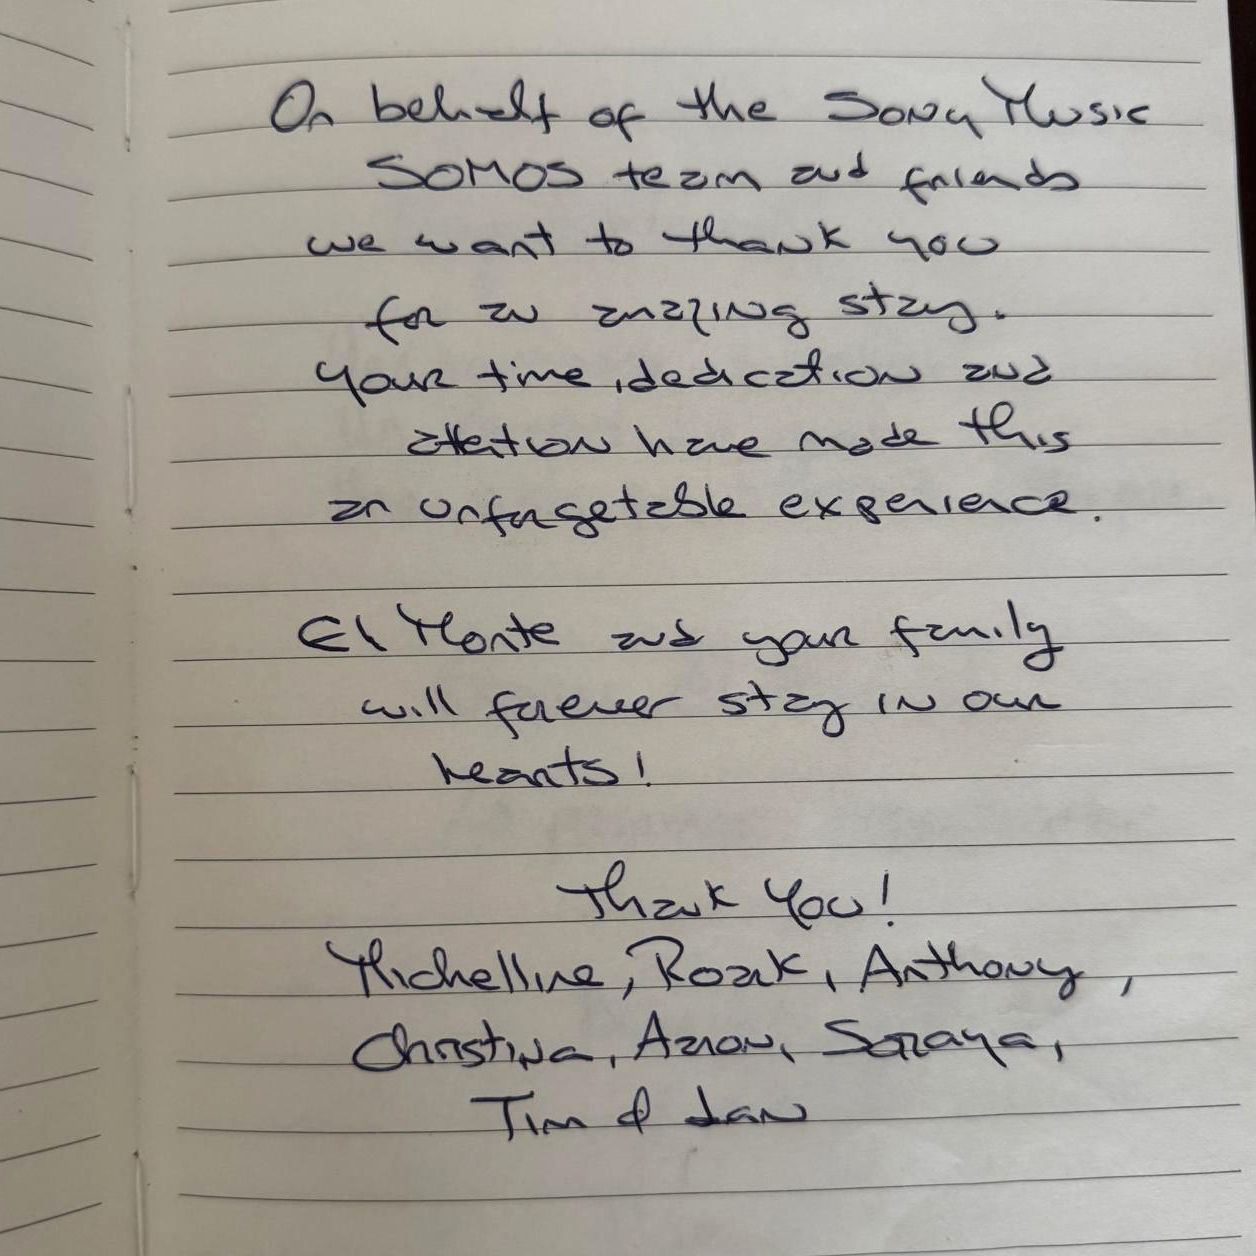 On behalf of the Sony Music
SOMOS team and friends
we want to thank you
for an amazing stay.
Your time, dedication and
attention have made this
an unforgetable experience.
El Monte and your family
will forever stay in our
hearts!
Thank You!
Michelline, Roak, Anthony,
Christina, Aaron, Soraya,
Tim & Ian